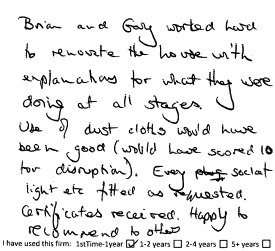 Brian and Gary worked hard
to renovate the house with
explanations for what they were
doing at all stages.
Use of dust cloths would have
been good (would have scored 10
for disruption). Every plug socket
light etc fitted as requested.
Certificates received. Happy to
recommend to other
I have used this firm: 1stTime-1year ☑ 1-2 years ☐ 2-4 years ☐ 5+ years ☐